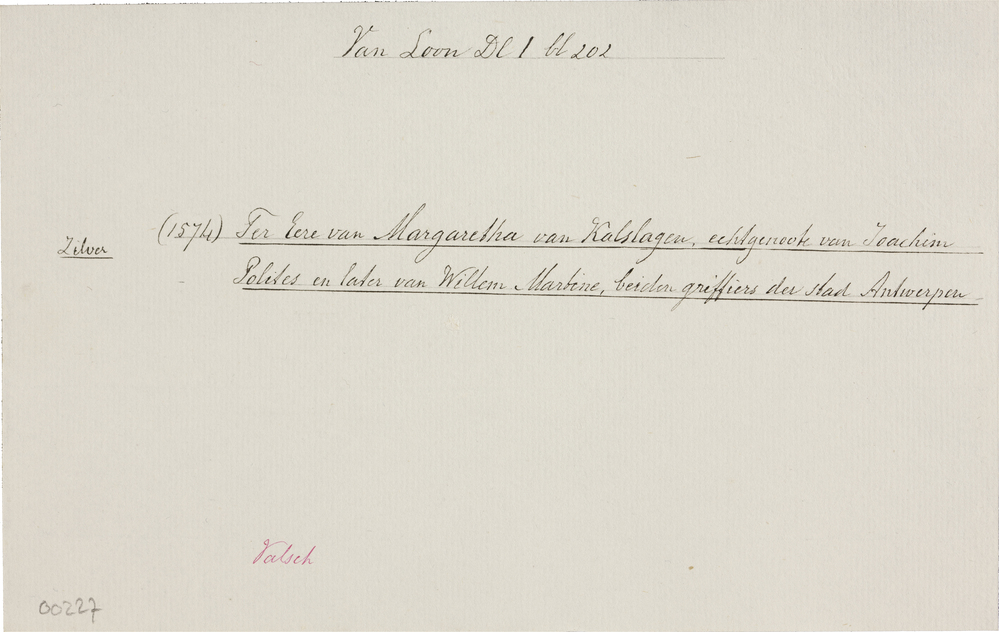 Van Loon Dl 1 bl 202
(1574) Ter Eere van Margaretha van Kalslagen, echtgenoote van Joachim
Zilver
Polites en later van Willem Martine, beiden griffiers der stad Antwerpen
Valsch
00227